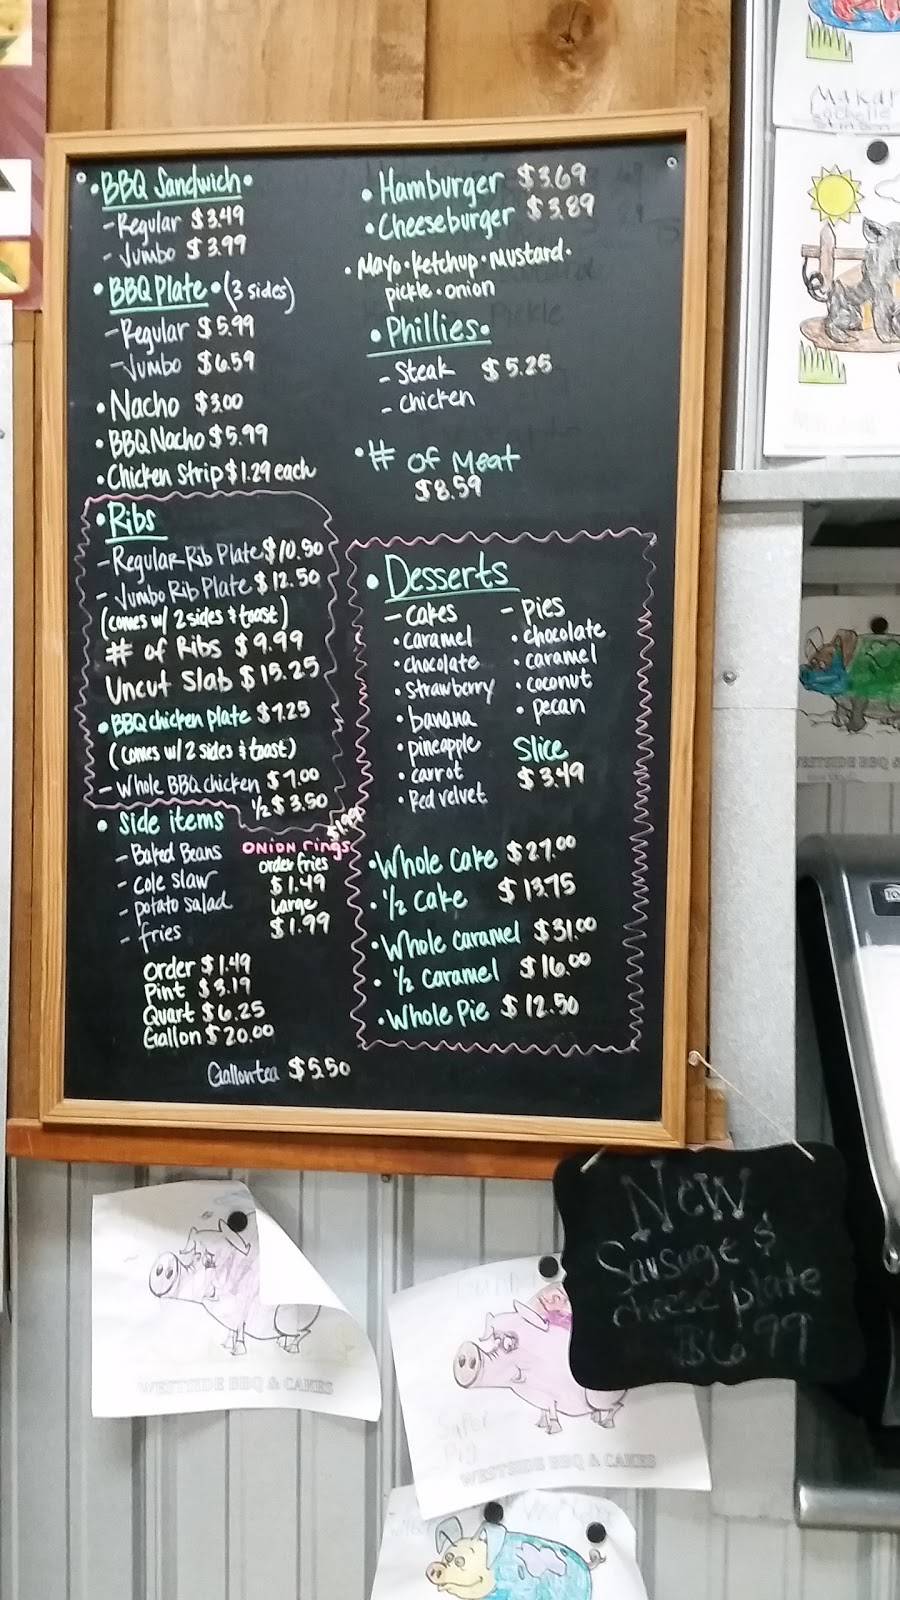 • BBQ Sandwich •
- Regular $3.49
- Jumbo $3.99
• BBQ Plate • (3 sides)
- Regular $5.99
- Jumbo $6.59
• Nacho $3.00
• BBQ Nacho $5.99
• Chicken Strip $1.29 each
• Ribs
- Regular Rib Plate $10.50
- Jumbo Rib Plate $12.50
(comes w/ 2 sides & toast)
# of Ribs $9.99
Uncut Slab $15.25
• BBQ chicken plate $7.25
(comes w/ 2 sides & toast)
- Whole BBQ chicken $7.00
1/2 $3.50
• Side items
- Baked Beans
- Cole Slaw
- potato salad
- fries
Order $1.49
Pint $3.19
Quart $6.25
Gallon $20.00
ONION rings $1.99
order fries
$1.49
Large
$1.99
Gallon tea $5.50
• Hamburger $3.69
• Cheeseburger $3.89
• Mayo • ketchup • Mustard •
pickle • onion
• Phillies •
- Steak $5.25
- chicken
• # of Meat
$8.59
• Desserts
- cakes
• caramel
• chocolate
• strawberry
• banana
• pineapple
• carrot
• Red velvet
- pies
• chocolate
• caramel
• coconut
• pecan
Slice
$3.49
• Whole Cake $27.00
• 1/2 Cake $13.75
• Whole caramel $31.00
• 1/2 Caramel $16.00
• Whole Pie $12.50
New
Sausage &
cheese plate
$6.99
WESTSIDE BBQ & CAKES
WESTSIDE BBQ & CAKES
WESTSIDE BBQ &